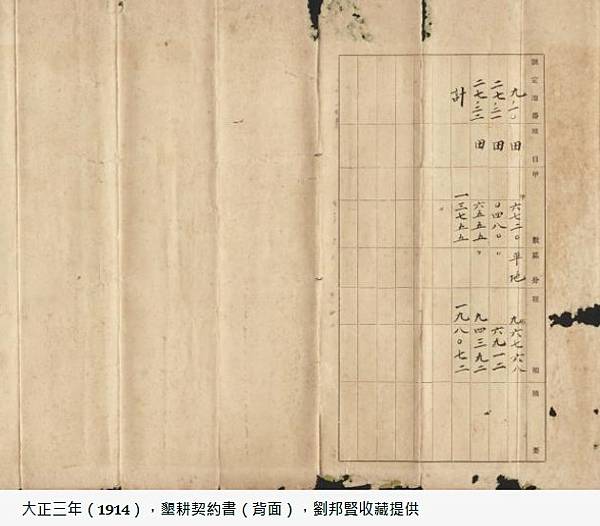 地番 地目 甲 數 區分 租 額 摘 要
田 六七二〇 九六七六八
田 〇四八〇 〃 六九一二
田 六五五五 〃 九四三九二
計 一三七五五 一九八〇七二
大正三年（1914），墾耕契約書（背面），劉邦賢收藏提供